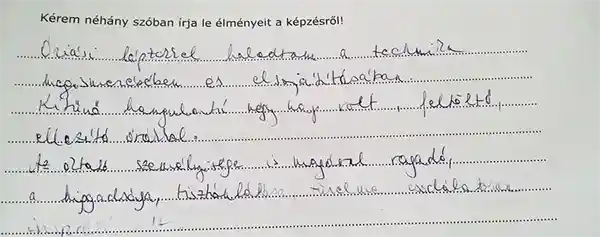 Kérem néhány szóban írja le élményeit a képzésről!
Óriási léptekkel haladtam a technika
megismerésében és elsajátításában.
Kitűnő hangulatú négy nap volt, feltöltő,
ellazító órákkal.
Az oktató személyisége is magával ragadó,
a higgadtsága, tisztánlátása